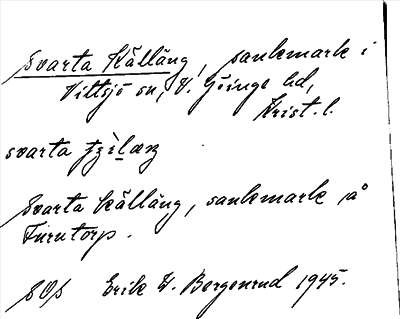 Svarta Källäng, sankmark i
Vittsjö sn, V. Göinge hd,
Krist. l.
svarta
Svarta Källäng, sankmark på
Furutorp.
SOS Erik W. Bergenrud 1945.